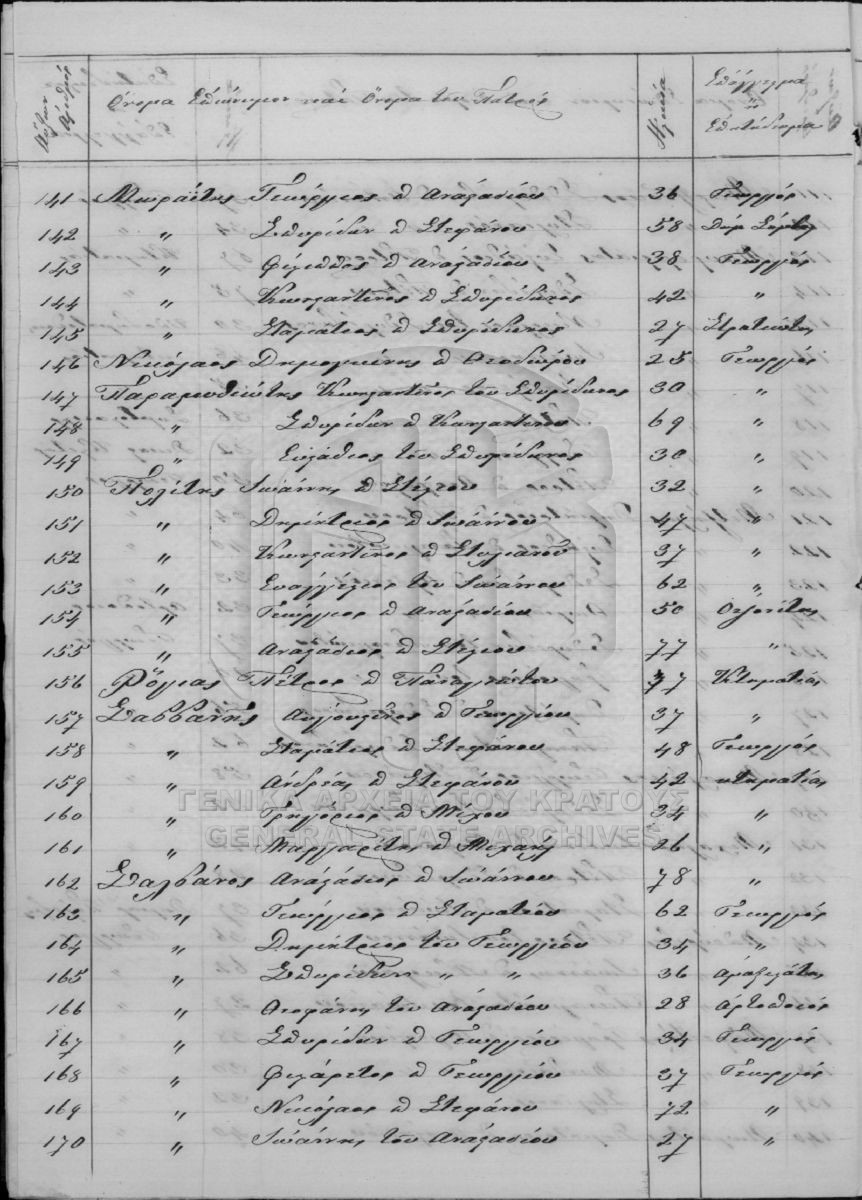 Αύξων Αριθμός Όνομα Επώνυμον και Όνομα του Πατρός Ηλικία Επάγγελμα ή Επιτήδευμα
141 Μωραΐτης Γεώργιος π Αναστασίου 36 Γεωργός
142 〃 Σπυρίδων π Στεφάνου 58 Δημ.
143 〃 Φίλιππος π Αναστασίου 38 Γεωργός
144 〃 Κωνσταντίνος π Σπυρίδωνος 42 〃
145 〃 Σταμάτιος π Σπυρίδωνος 27 Στρατιώτης
146 Νικόλαος π Θεοδώρου 25 Γεωργός
147 Παραμυθιώτης Κωνσταντίνος του Σπυρίδωνος 30 〃
148 〃 Σπυρίδων π Κωνσταντίνου 69 〃
149 〃 Ευστάθιος του Σπυρίδωνος 30 〃
150 Πολίτης Ιωάννης π Στέλιου 32 〃
151 〃 Δημήτριος π Ιωάννου 47 〃
152 〃 Κωνσταντίνος π Στυλιανού 37 〃
153 〃 Ευαγγέλιος του Ιωάννου 62 〃
154 〃 Γεώργιος π Αναστασίου 50
155 〃 Αναστάσιος π Στέλιου 77 〃
156 Ρόγιας Πέτρος π 77 Κτηματίας
157 Σαββανής Αυγουστίνος π Γεωργίου 37 〃
158 〃 Σταμάτιος π Στεφάνου 48 Γεωργός
159 〃 Ανδρέας π Στεφάνου 42 κτηματίας
160 〃 Γρηγόριος π Μίχου 34 〃
161 〃 Μαργαρίτης π Μιχαήλ 26 〃
162 Σαλβάνος Αναστάσιος π Ιωάννου 78 〃
163 〃 Γεώργιος π Σταματίου 62 Γεωργός
164 〃 Δημήτριος του Γεωργίου 34 〃
165 〃 Σπυρίδων 〃 〃 36 Αμαξηλάτης
166 〃 Θεοφάνης του Αναστασίου 28 Αρτοποιός
167 〃 Σπυρίδων π Γεωργίου 34 Γεωργός
168 〃 Φιλάρετος π Γεωργίου 37 Γεωργός
169 〃 Νικόλαος π Στεφάνου 72 〃
170 〃 Ιωάννης του Αναστασίου 27 〃
ΓΕΝΙΚΑ ΑΡΧΕΙΑ ΤΟΥ ΚΡΑΤΟΥΣ
GENERAL STATE ARCHIVES